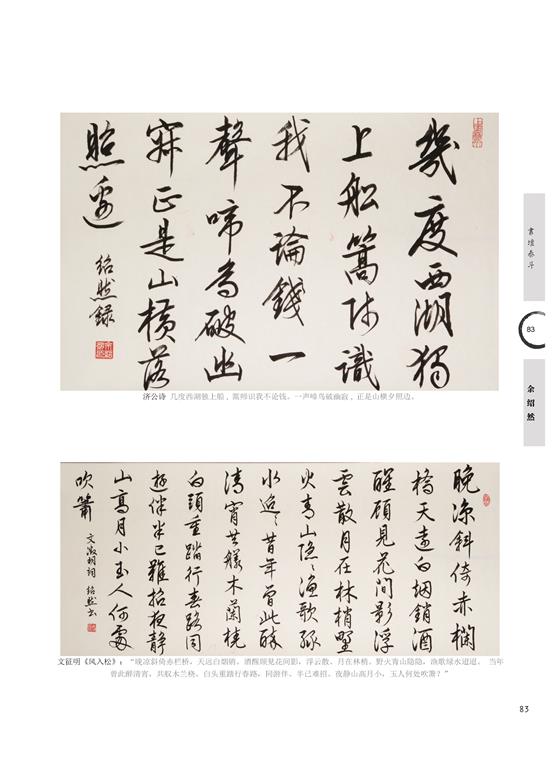 幾度西湖獨
上船篙師識
我不論錢一
聲啼鳥破幽
寂正是山橫落
照邊
紹然録
济公诗 几度西湖独上船，篙师识我不论钱。一声啼鸟破幽寂，正是山横夕照边。
書壇泰斗
83
余绍然
晚涼斜倚赤欄
橋天遠白烟銷酒
醒顧見花間影浮
雲散月在林梢野
火青山隐隐漁歌緑
水迢迢昔年曾此醉
清宵共艤木蘭橈
白頭重踏行春路同
遊伴半已難招夜静
山高月小玉人何處
吹簫
文徵明詞 紹然書
文征明《风入松》：“晚凉斜倚赤栏桥，天远白烟销。酒醒顾见花间影，浮云散、月在林梢。野火青山隐隐，渔歌绿水迢迢。 当年
曾此醉清宵，共舣木兰桡。白头重踏行春路，同游伴、半已难招。夜静山高月小，玉人何处吹箫？”
83